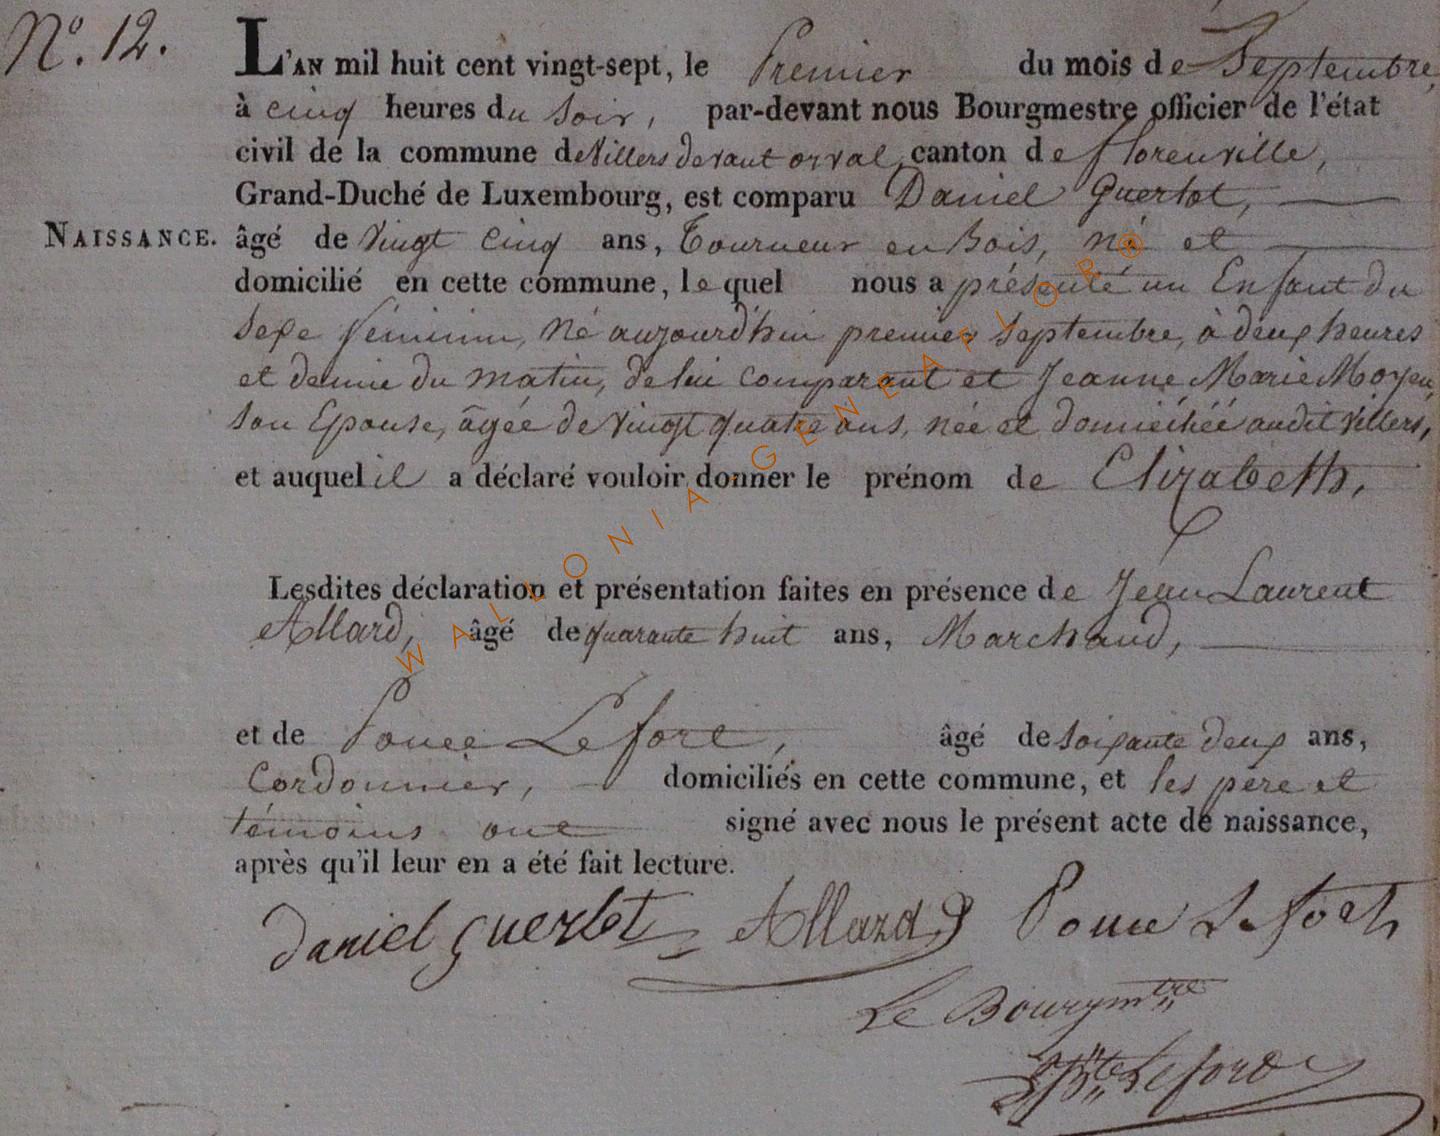 N°. 12.
L'AN mil huit cent vingt-sept, le Premier du mois de Septembre,
à cinq heures du soir, par-devant nous Bourgmestre officier de l'état
civil de la commune de Villers devant orval, canton de florenville,
Grand-Duché de Luxembourg, est comparu Daniel Guerlot,
NAISSANCE. âgé de Vingt cinq ans, Tourneur en Bois, né et
domicilié en cette commune, lequel nous a présenté un Enfant du
Sexe féminin, né aujourd'hui premier septembre, à deux heures
et demie du matin, de lui comparant et Jeanne Marie Moyen,
son Epouse, âgée de vingt quatre ans, née et domiciliée audit villers,
et auquel il a déclaré vouloir donner le prénom de Elizabeth,
Lesdites déclaration et présentation faites en présence de Jean Laurent
Allard, âgé de quarante huit ans, Marchand,
et de Ponce Lefort, âgé de soixante deux ans,
Cordonnier, domiciliés en cette commune, et les père et
témoins ont signé avec nous le présent acte de naissance,
après qu'il leur en a été fait lecture.
daniel guerlot Allard Ponce Lefort
Le Bourgmtre
Jn Bte Lefort
WALLONIA-GENEAFLOR®